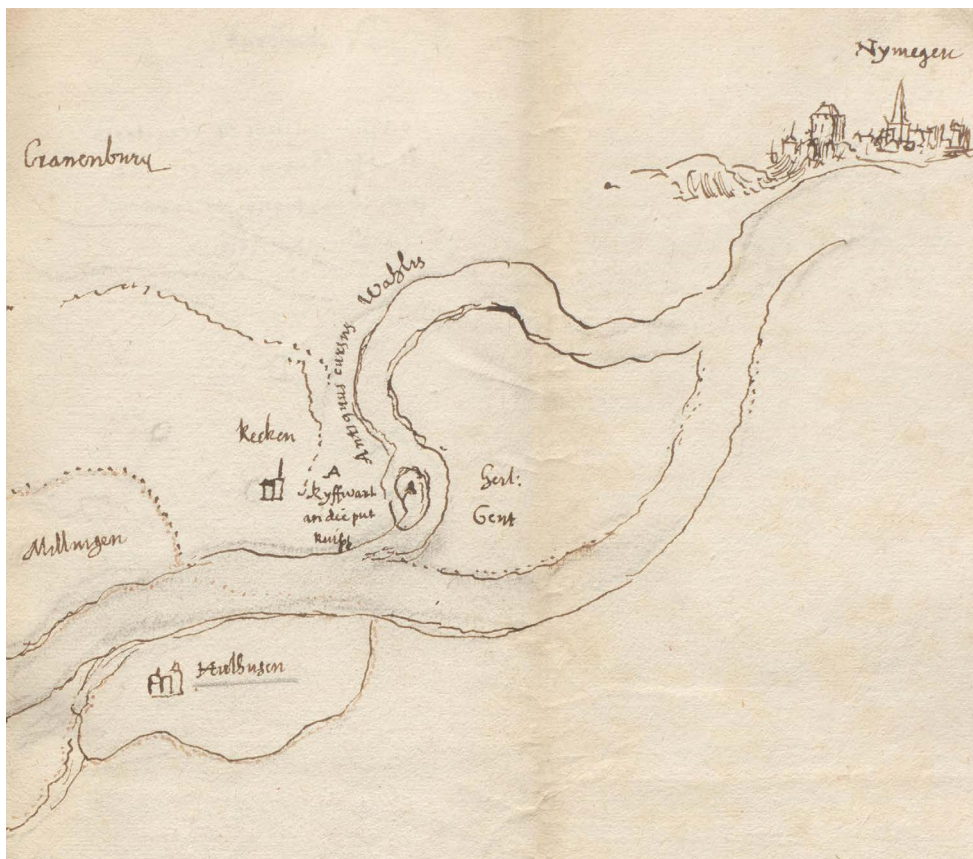 Nymegen
Cranenburg
Antiquus cursus Wahlis
Kecken
A
Ryffwart
an die put
herl:
Gent
A
Millingen
Hulhusen